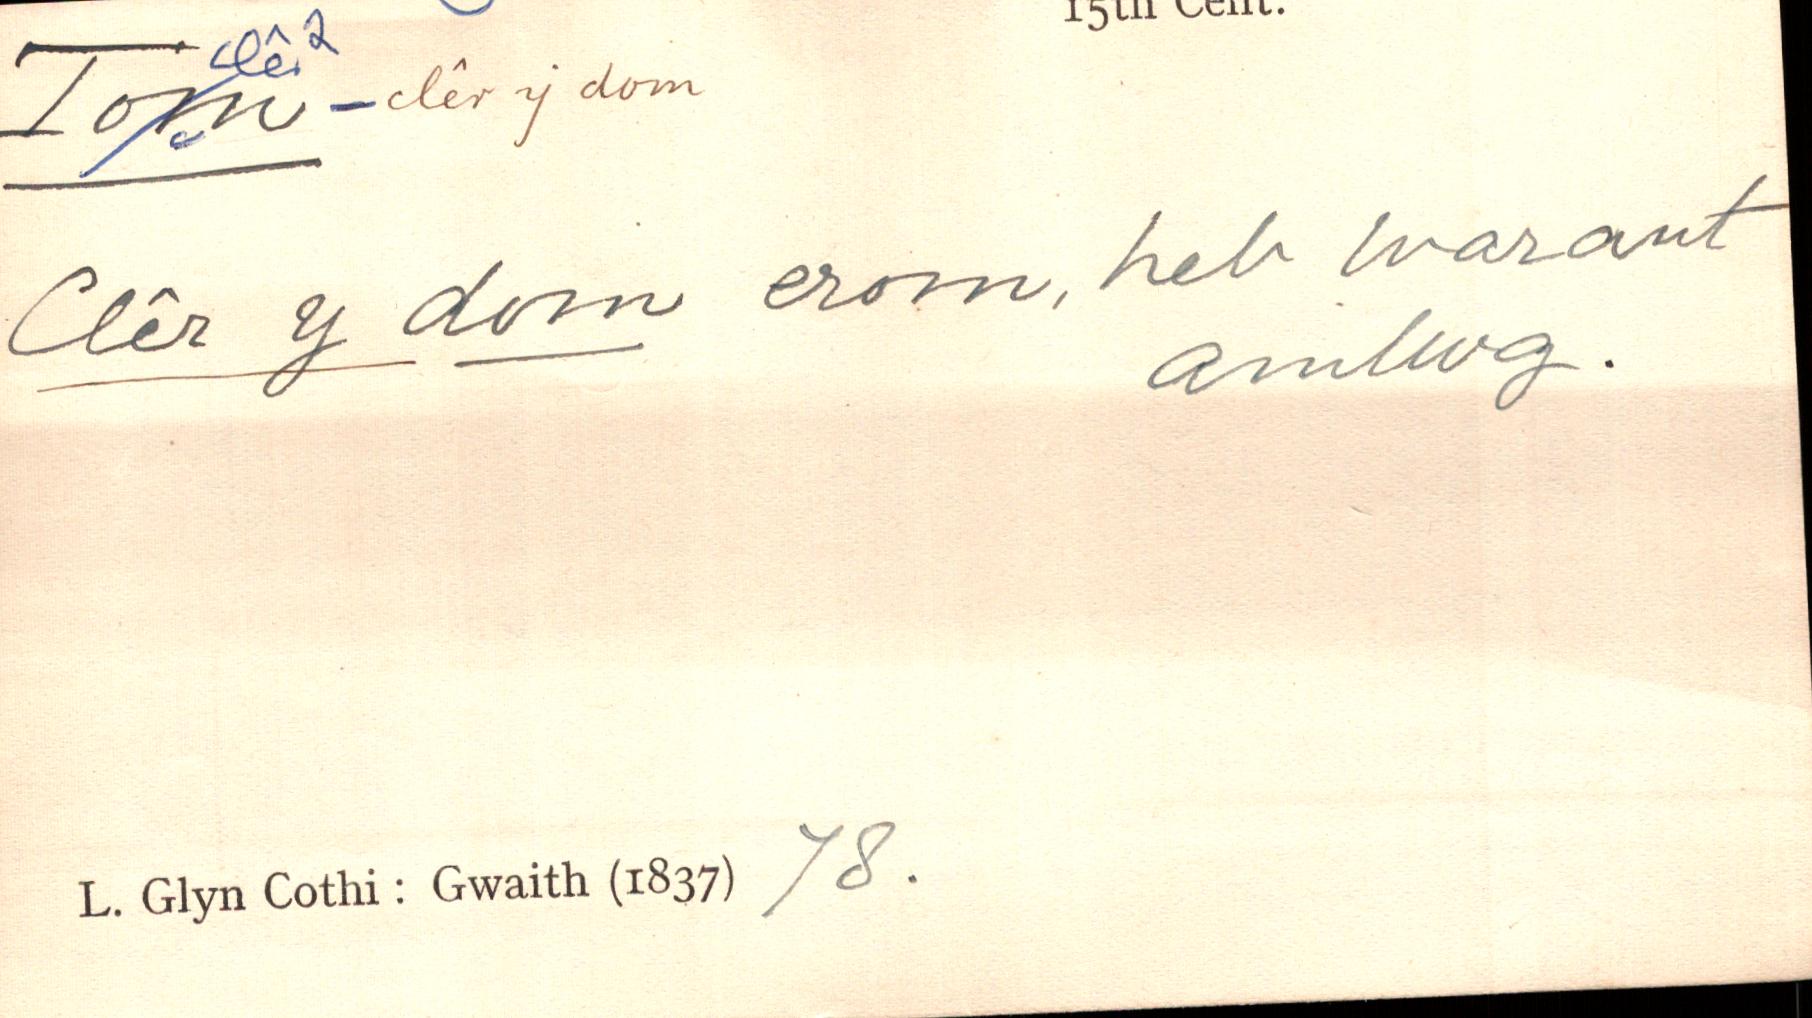 15th Cent.
clêr 2
Tom - clêr y dom
Clêr y dom erom, heb warant
amlwg.
L. Glyn Cothi : Gwaith (1837) 78.